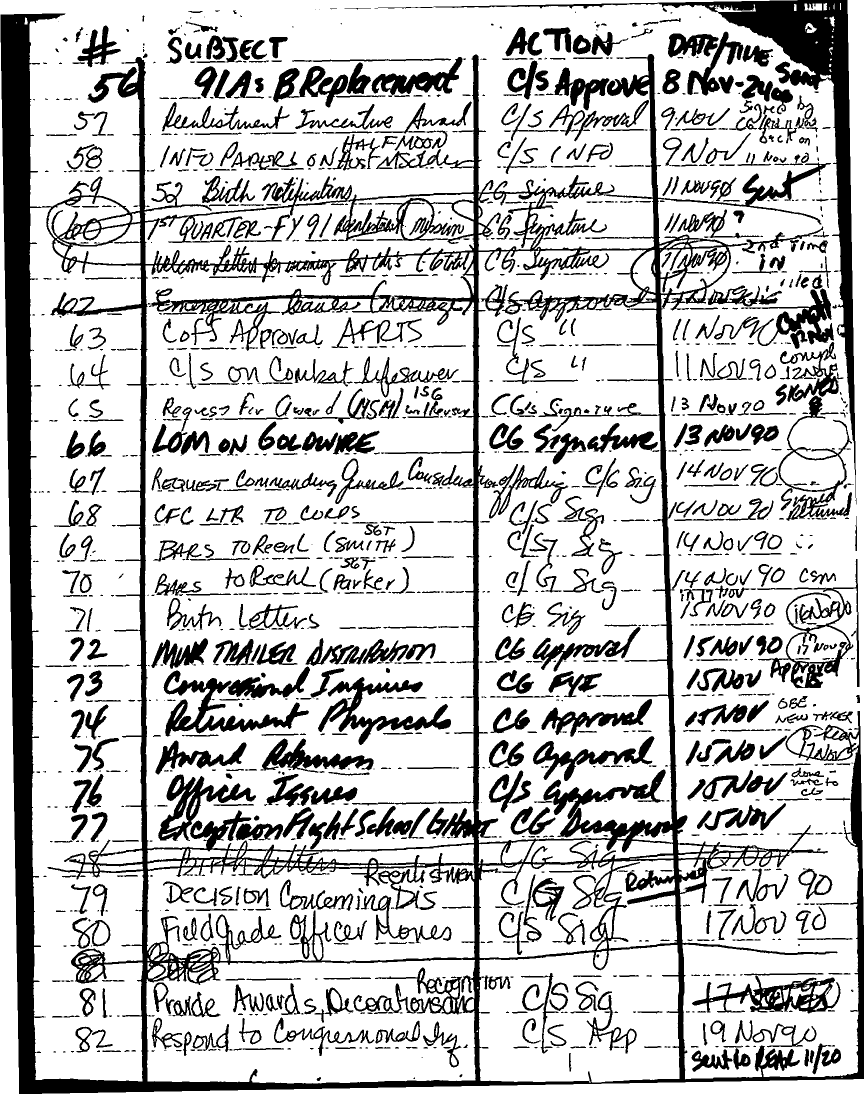 # SUBJECT ACTION DATE/TIME
56 91A & B Replacement C/S Approve 8 Nov-2400 Sent
57 Reenlistment Incentive Award C/S Approval 9 Nov Signed by
58 INFO PAPERS ON HALFMOON C/S INFO 9 Nov back on 11 Nov 90
59 52 Birth notifications CG Signature 11 Nov 90 Sent
60 1ST QUARTER-FY 91 Reenlistment mission CG Signature 11 Nov 90 ?
61 Welcome Letters for incoming BN Cdr's (6 total) CG Signature 11 Nov 90 2nd Time IN
62 Emergency Leaves (message) C/S Approval 11 Nov 90
63 CofS Approval AFRTS C/S " 11 Nov 90 Compl 12 Nov
64 C/S on Combat lifesaver C/S " 11 NOV 90 Compl 12 Nov
65 Request for Award (MSM) CG's Signature 13 Nov 90 SIGNED
66 LOM ON GOLDWIRE CG Signature 13 NOV 90
67 REQUEST Commanding General Consideration of C/G Sig 14 NOV 90
68 CFC LTR TO CORPS C/S Sig 14 NOV 90 Signed Returned
69 BARS TO Reenl (SGT SMITH) C/G Sig 14 Nov 90
70 BARS to Reenl (SGT Parker) C/G Sig 14 Nov 90 CSM
71 Birth Letters C/G Sig in 17 Nov 15 Nov 90 16 Nov 90
72 MWR TRAILER DISTRIBUTION CG Approval 15 Nov 90 in 17 Nov 90
73 Congressional Inquiries CG FYI 15 Nov Approved C/S
74 Retirement Physicals CG Approval 15 Nov OBE. NEW TAKER
75 Award Robinson CG Approval 15 Nov 17 Nov
76 Officer Issues C/S Approval 15 Nov done - next to CG
77 Exception Flight School CG Disapprove 15 Nov
78 Birth Letters C/G Sig 16 Nov
79 DECISION Concerning Reenlistment DIS C/G Sig Returned 17 Nov 90
80 Field Grade Officer Moves C/S Sig 17 Nov 90
81 Provide Awards, Decorations and Recognition C/S Sig 17 Nov 90
82 Respond to Congressional Inq. C/S App 19 Nov 90
sent to REAR 11/20